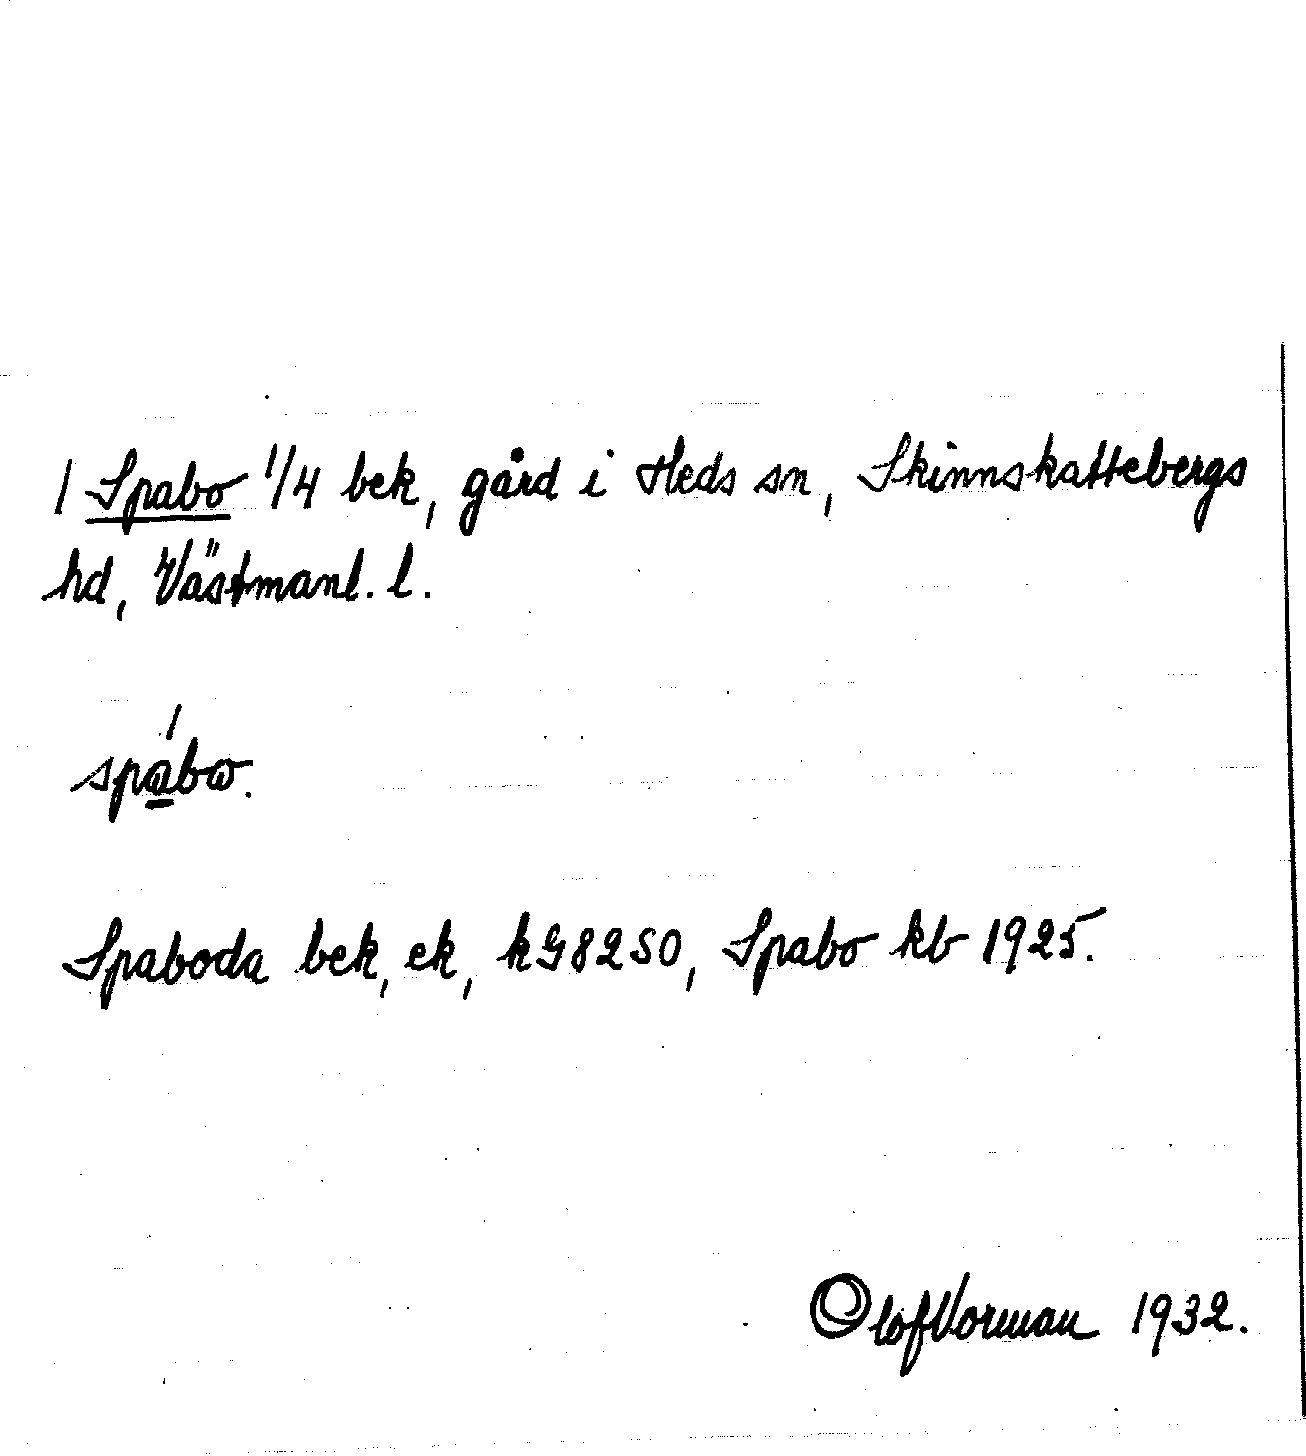 1 Spabo 1/4 bek, gård i Heds sn, Skinnskattebergs
hd, Västmanl. l.
spabω.
Spaboda bek, ek, kG82SO, Spabo kb 1925.
Olof Vorman 1932.